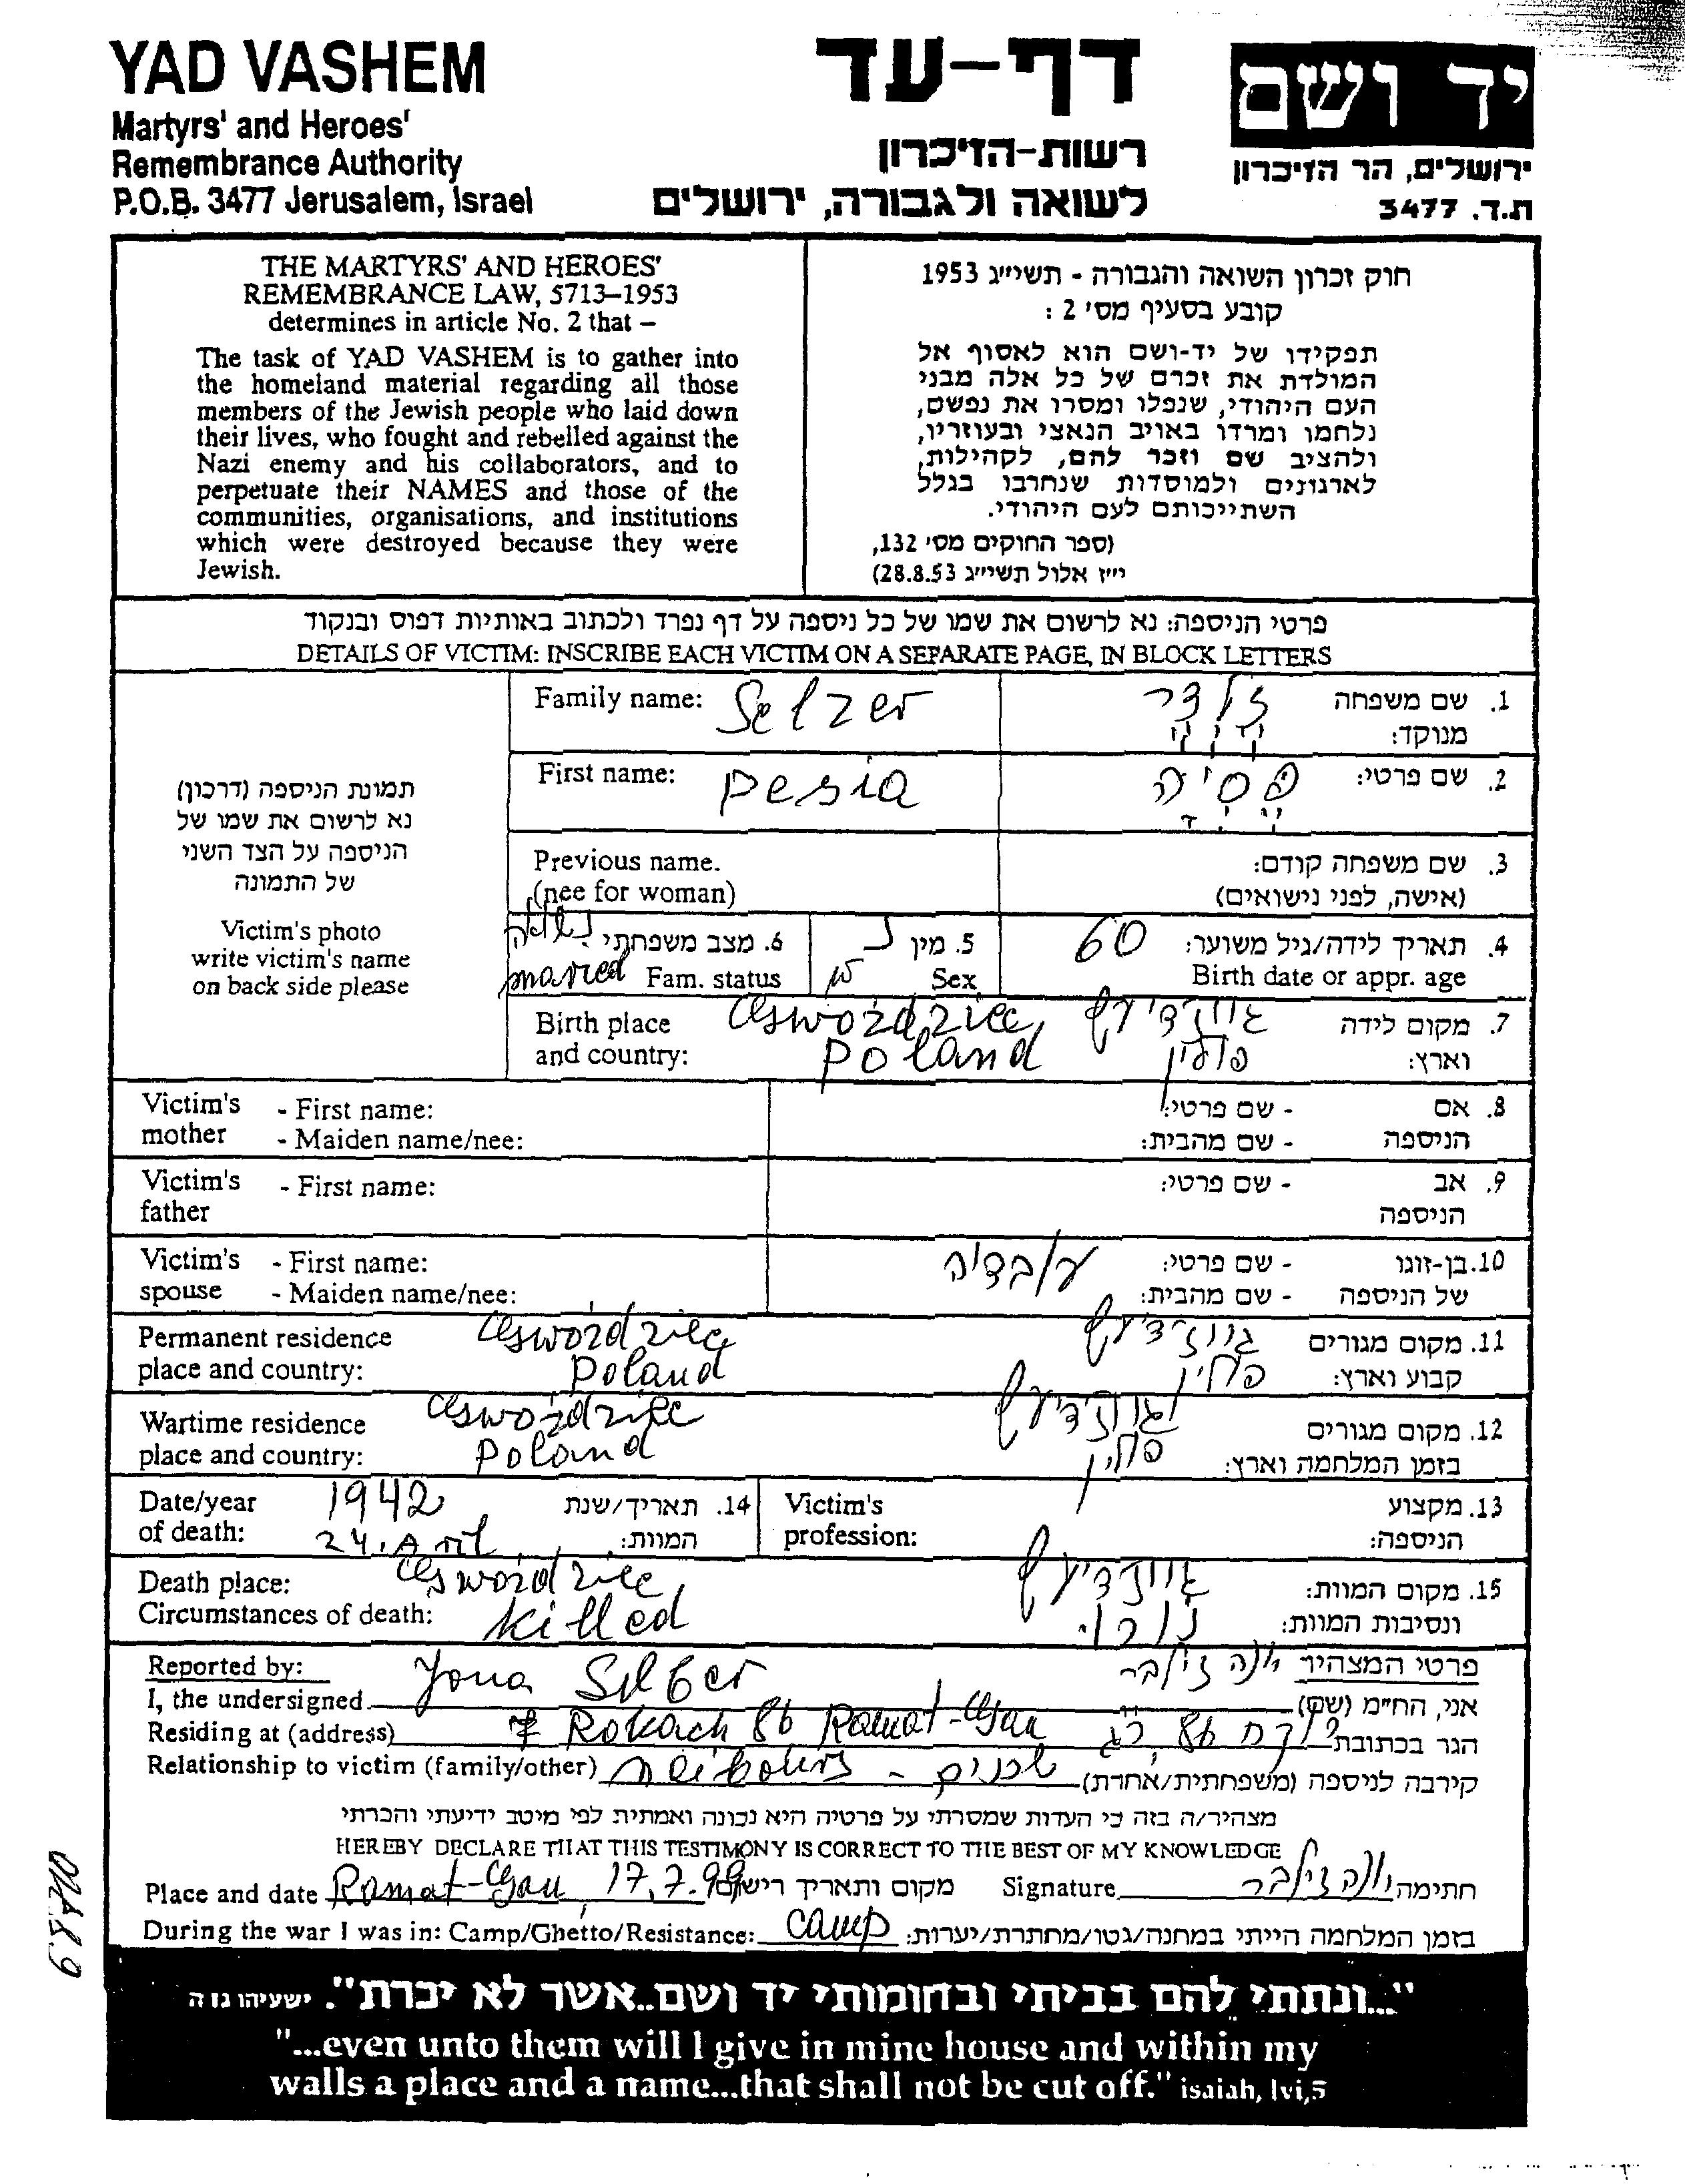 YAD VASHEM
Martyrs' and Heroes'
Remembrance Authority
P.O.B. 3477 Jerusalem, Israel
דף-עד
רשות-הזיכרון
לשואה ולגבורה, ירושלים
יד ושם
ירושלים, הר הזיכרון
ת.ד. 3477
THE MARTYRS' AND HEROES'
REMEMBRANCE LAW, 5713–1953
determines in article No. 2 that –
The task of YAD VASHEM is to gather into
the homeland material regarding all those
members of the Jewish people who laid down
their lives, who fought and rebelled against the
Nazi enemy and his collaborators, and to
perpetuate their NAMES and those of the
communities, organisations, and institutions
which were destroyed because they were
Jewish.
חוק זכרון השואה והגבורה - תשי״ג 1953
קובע בסעיף מס׳ 2 :
תפקידו של יד-ושם הוא לאסוף אל
המולדת את זכרם של כל אלה מבני
העם היהודי, שנפלו ומסרו את נפשם,
נלחמו ומרדו באויב הנאצי ובעוזריו,
ולהציב שם וזכר להם, לקהילות,
לארגונים ולמוסדות שנחרבו בגלל
השתייכותם לעם היהודי.
(ספר החוקים מס׳ 132,
י״ז אלול תשי״ג 28.8.53)
פרטי הניספה: נא לרשום את שמו של כל ניספה על דף נפרד ולכתוב באותיות דפוס ובנקוד
DETAILS OF VICTIM: INSCRIBE EACH VICTIM ON A SEPARATE PAGE, IN BLOCK LETTERS
תמונת הניספה (דרכון)
נא לרשום את שמו של
הניספה על הצד השני
של התמונה
Victim's photo
write victim's name
on back side please
Family name: Selzer
1. שם משפחה
מנוקד:
First name: Pesia
2. שם פרטי: פסיה
Previous name.
(nee for woman)
3. שם משפחה קודם:
(אישה, לפני נישואים)
6. מצב משפחתי נשואה
married Fam. status
5. מין נ
Sex
4. תאריך לידה/גיל משוער: 60
Birth date or appr. age
Birth place
and country: Gswoździec, Poland
7. מקום לידה
וארץ: פולין
Victim's mother - First name:
- Maiden name/nee:
8. אם - שם פרטי:
הניספה - שם מהבית:
Victim's father - First name:
9. אב - שם פרטי:
הניספה
Victim's spouse - First name:
- Maiden name/nee:
10. בן-זוגו - שם פרטי: עובדיה
של הניספה - שם מהבית:
Permanent residence Gswoździec
place and country: Poland
11. מקום מגורים
קבוע וארץ: פולין
Wartime residence Gswoździec
place and country: Poland
12. מקום מגורים
בזמן המלחמה וארץ: פולין
Date/year 1942
of death: 24.
14. תאריך/שנת
המוות:
Victim's
profession:
13. מקצוע
הניספה:
Death place: Gswoździec,
Circumstances of death: killed
15. מקום המוות:
ונסיבות המוות:
Reported by:
I, the undersigned Yona Silber
פרטי המצהיר
אני, החי״מ (שם) יונה זילבר
Residing at (address) Rokach 86 Ramat-Gan
הגר בכתובת רוקח 86 רג
Relationship to victim (family/other) neibours - שכנים
קירבה לניספה (משפחתית/אחרת)
מצהיר/ה בזה כי העדות שמסרתי על פרטיה היא נכונה ואמתית לפי מיטב ידיעתי והכרתי
HEREBY DECLARE THAT THIS TESTIMONY IS CORRECT TO THE BEST OF MY KNOWLEDGE
Place and date Ramat-Gan, 17.7.99 מקום ותאריך רישום
Signature יונה זילבר חתימה
During the war I was in: Camp/Ghetto/Resistance: camp בזמן המלחמה הייתי במחנה/גטו/מחתרת/יערות:
"...ונתתי להם בביתי ובחומותי יד ושם..אשר לא יכרת". ישעיהו נו ה
"...even unto them will I give in mine house and within my
walls a place and a name...that shall not be cut off." isaiah, lvi,5